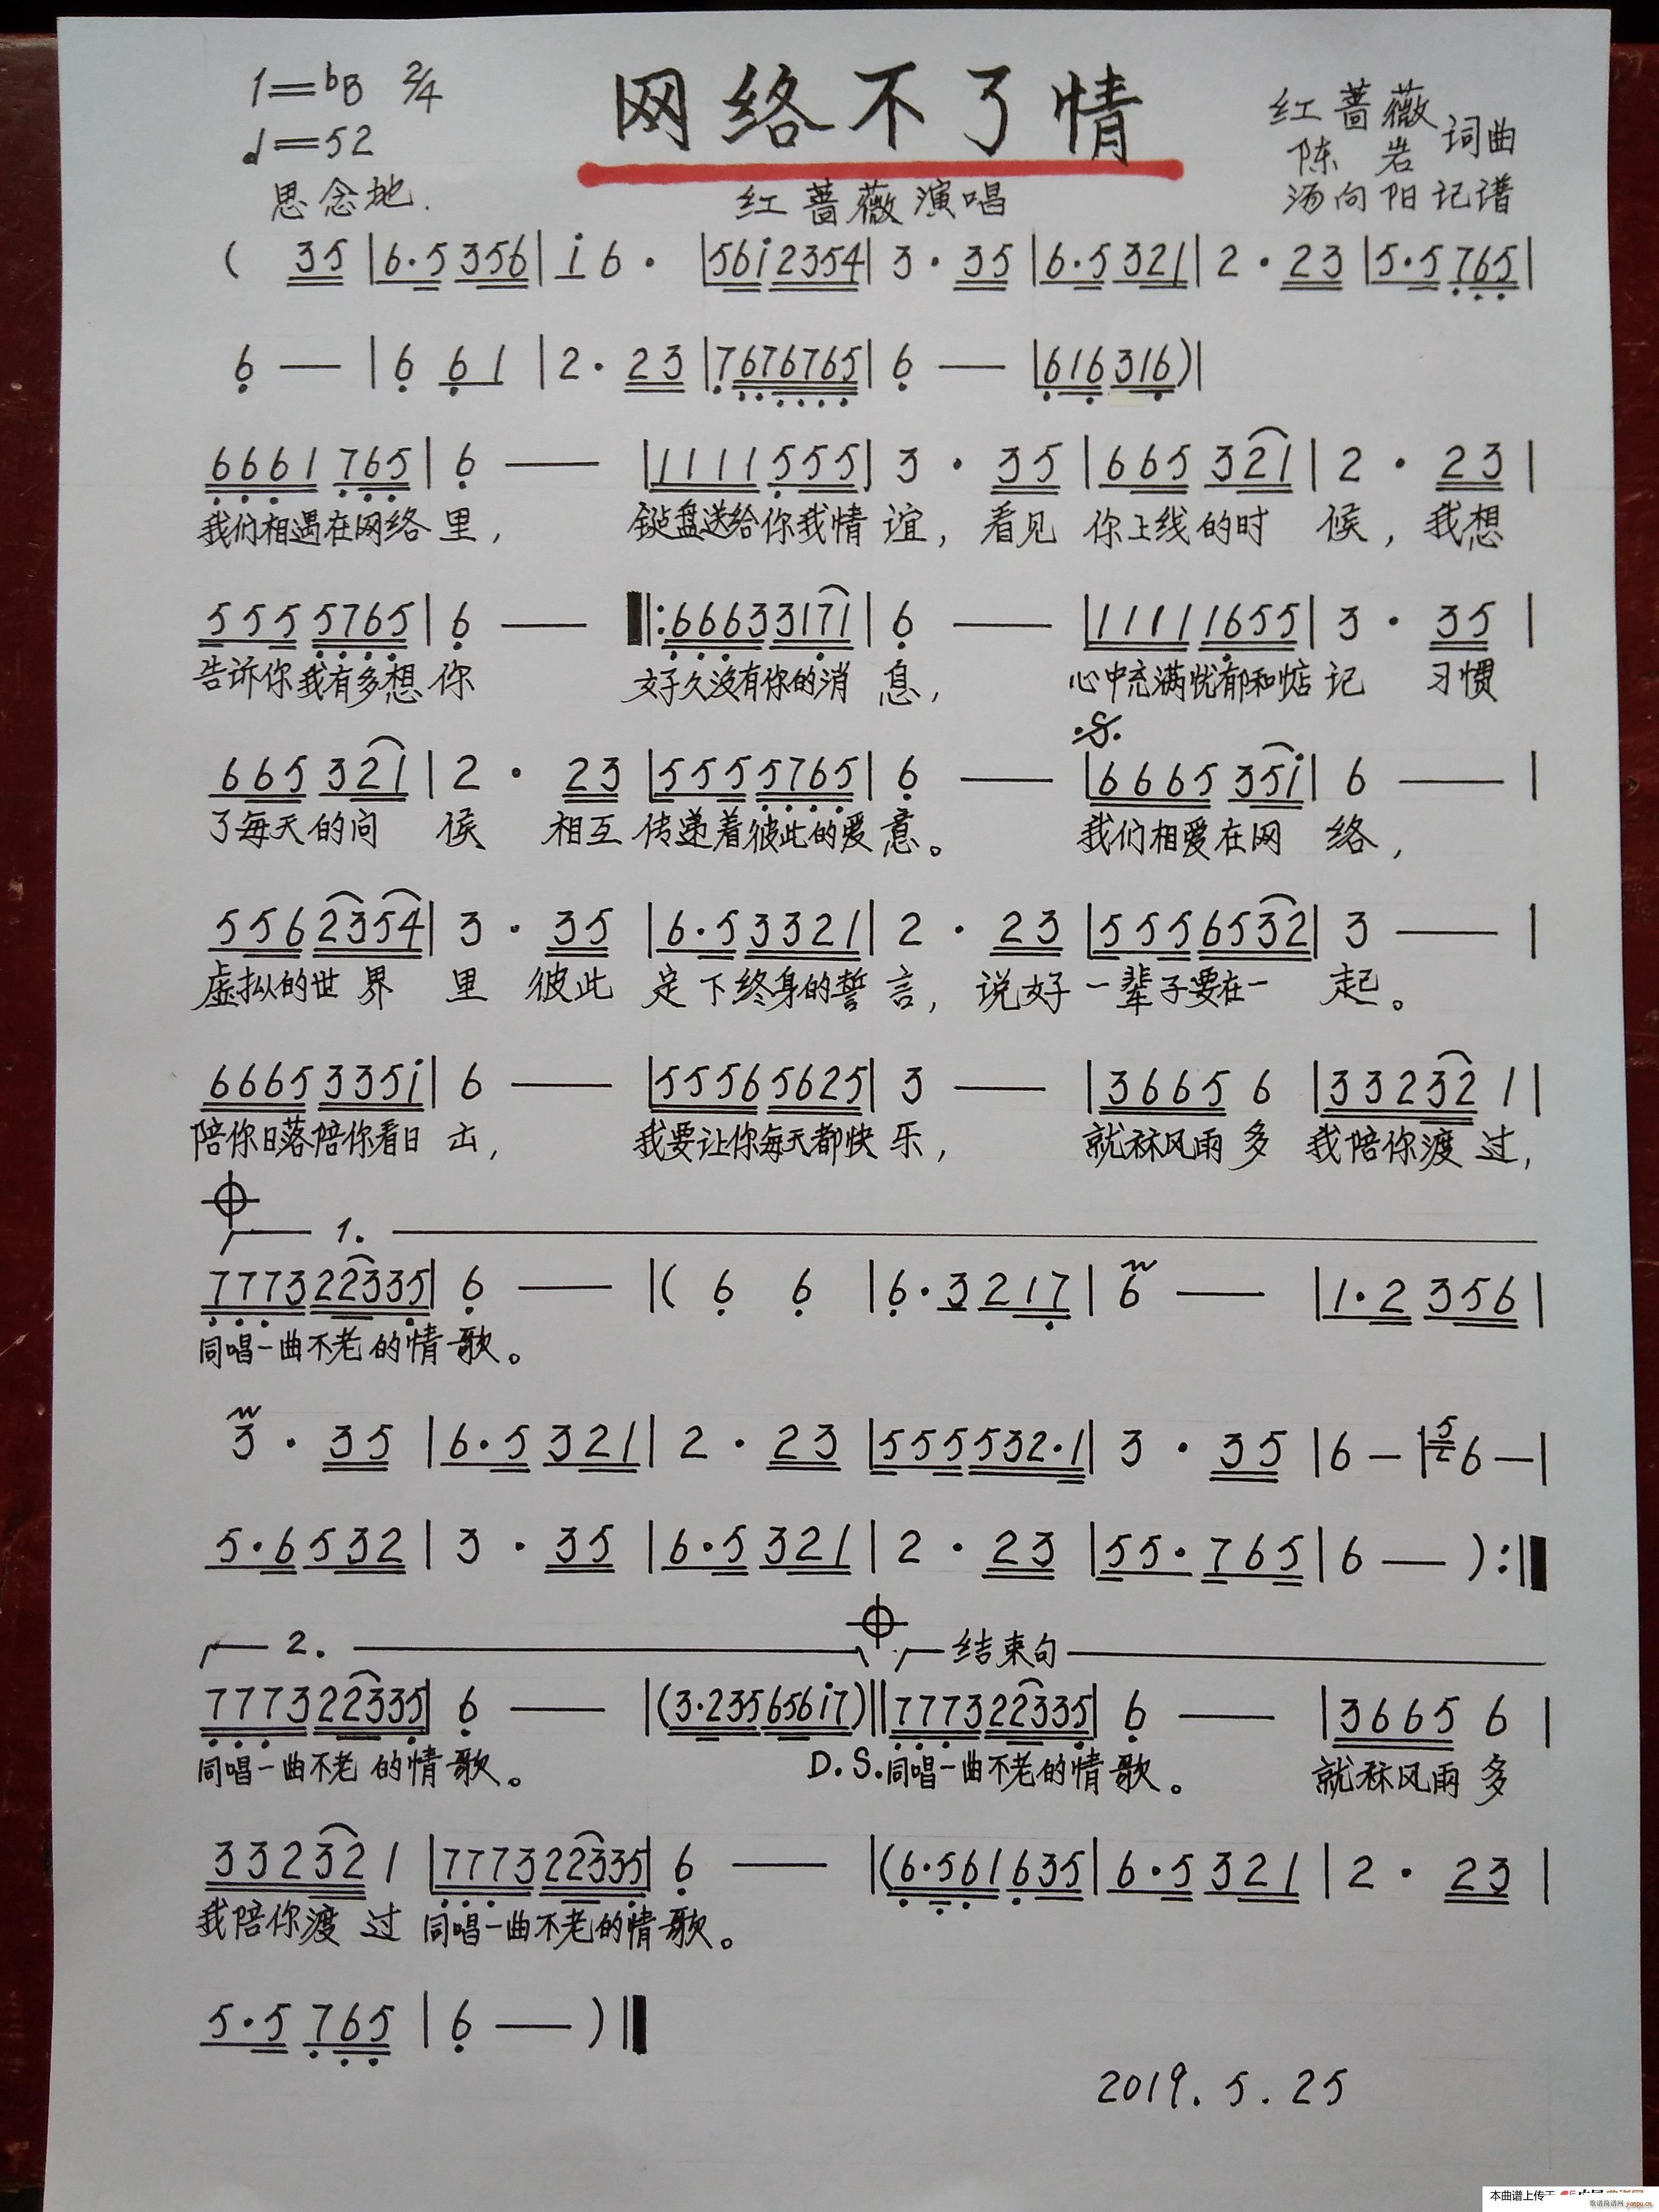 1=bB 2/4
网络不了情
红蔷薇
陈岩 词曲
♩=52
思念地.
红蔷薇演唱
汤向阳记谱
( 35 | 6·5 356 | i 6· | 56i2354 | 3·35 | 6·5 321 | 2·23 | 5·5 765 |
6 — | 6 61 | 2·23 | 7676765 | 6 — | 616 316 ) |
6661 765 | 6 — | 1111 555 | 3·35 | 665 321 | 2·23 |
我们相遇在网络里, 键盘送给你我情谊, 看见你上线的时候, 我想
555 5765 | 6 — |: 6663 3171 | 6 — | 1111 1655 | 3·35 |
告诉你我有多想你 好久没有你的消息, 心中充满忧郁和惦记 习惯
665 321 | 2·23 | 555 5765 | 6 — | 6665 35i | 6 — |
了每天的问候 相互传递着彼此的爱意。 我们相爱在网络,
556 2354 | 3·35 | 6·5 3321 | 2·23 | 555 6532 | 3 — |
虚拟的世界里 彼此定下终身的誓言, 说好一辈子要在一起。
6665 335i | 6 — | 5556 5625 | 3 — | 3665 6 | 33232 1 |
陪你日落陪你看日出, 我要让你每天都快乐, 就秝风雨多 我陪你渡过,
1.
7773 22335 | 6 — | ( 6 6 | 6·3 217 | 6 — | 1·2 356 |
同唱一曲不老的情歌。
3·35 | 6·5 321 | 2·23 | 555 532·1 | 3·35 | 6 — | 5 6 — |
5·6 532 | 3·35 | 6·5 321 | 2·23 | 55· 765 | 6 — ) :|
2. 结束句
7773 22335 | 6 — | (3·235 656i7) || 7773 22335 | 6 — | 3665 6 |
同唱一曲不老的情歌。 D.S.同唱一曲不老的情歌。 就秝风雨多
33232 1 | 7773 22335 | 6 — | (6·561 635 | 6·5 321 | 2·23 |
我陪你渡过 同唱一曲不老的情歌。
5·5 765 | 6 — ) ||
2019.5.25
本曲谱上传于